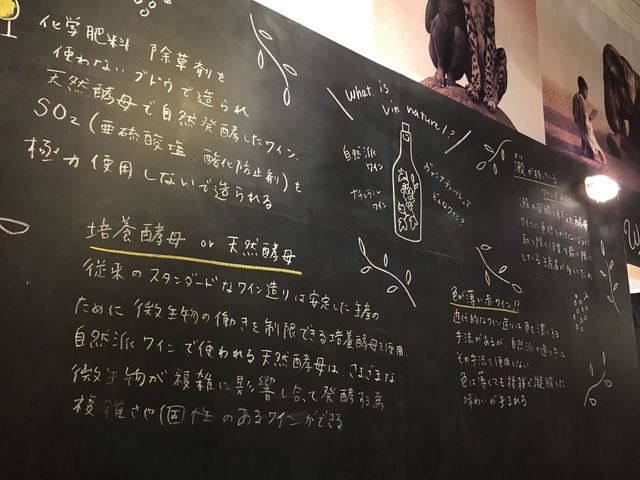 化学肥料 除草剤を
使わないブドウで造られ
天然酵母で自然発酵したワイン.
SO2(亜硫酸塩.酸化防止剤)を
極力使用しないで造られる
What is
vin nature!?
自然派
ワイン
ナチュラル
ワイン
ヴァンナチュールって?
どんなワイン?
培養酵母 or 天然酵母
従来のスタンダードなワイン造りは安定した生産の
ために微生物の働きを制限できる培養酵母を使用.
自然派ワインで使われる天然酵母は、さまざまな
微生物が複雑に影響し合って発酵する為
複雑さや個性のあるワインができる
澱が
色が薄い赤ワインは
近代的なワイン造りは色を濃くする
手法があるが、自然派の造り手は
その手法を使用しない
色は薄くても複雑で凝縮した
味わいが